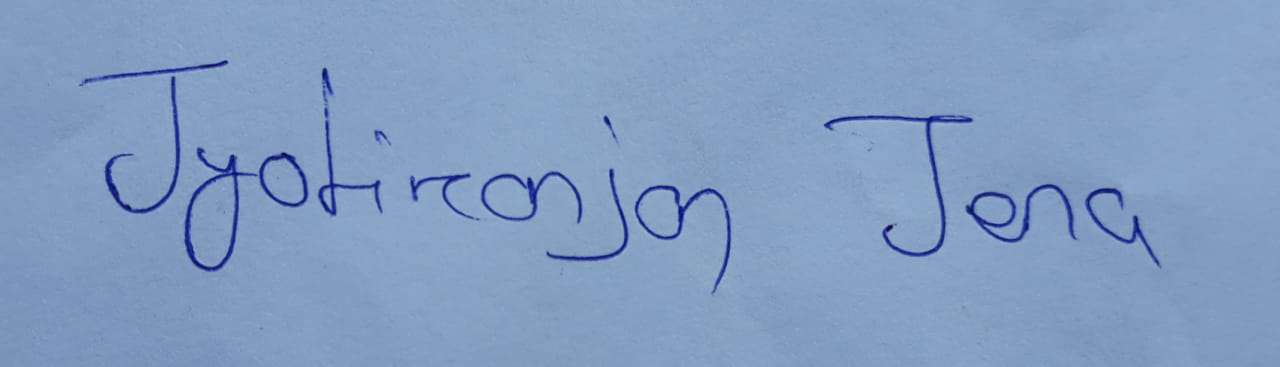 Jyotiranjan Jena